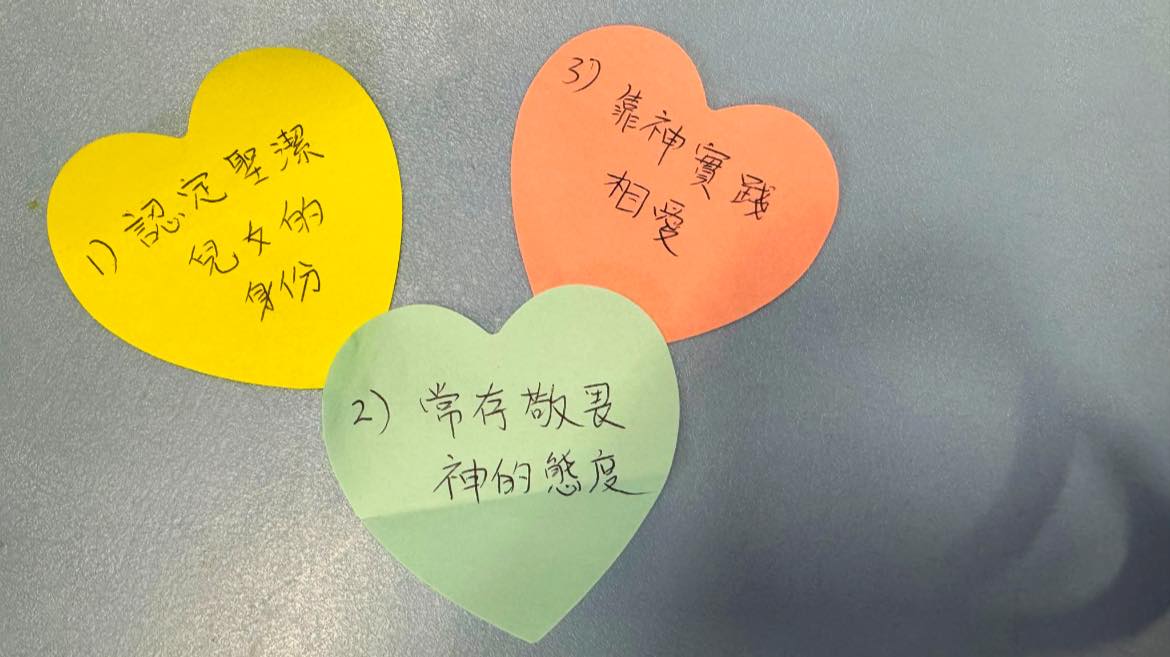 1) 認定聖潔
兒女的
身份
2) 常存敬畏
神的態度
3) 靠神實踐
相愛